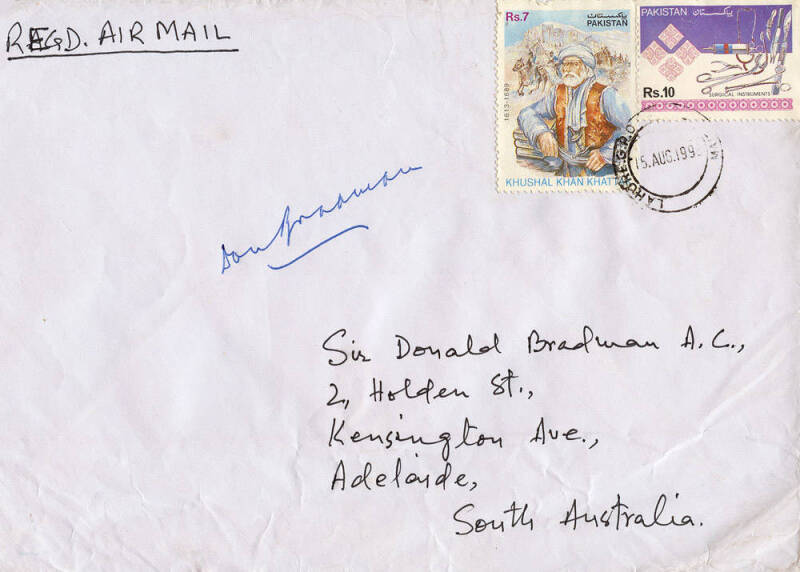 REGD. AIR MAIL
Rs.7
پاکستان
PAKISTAN
1613-1689
KHUSHAL KHAN KHATT
PAKISTAN پاکستان
Rs.10
SURGICAL INSTRUMENTS
LAHORE G.P.O.
15.AUG.199
Don Bradman
Sir Donald Bradman A.C.,
2, Holden St.,
Kensington Ave.,
Adelaide,
South Australia.